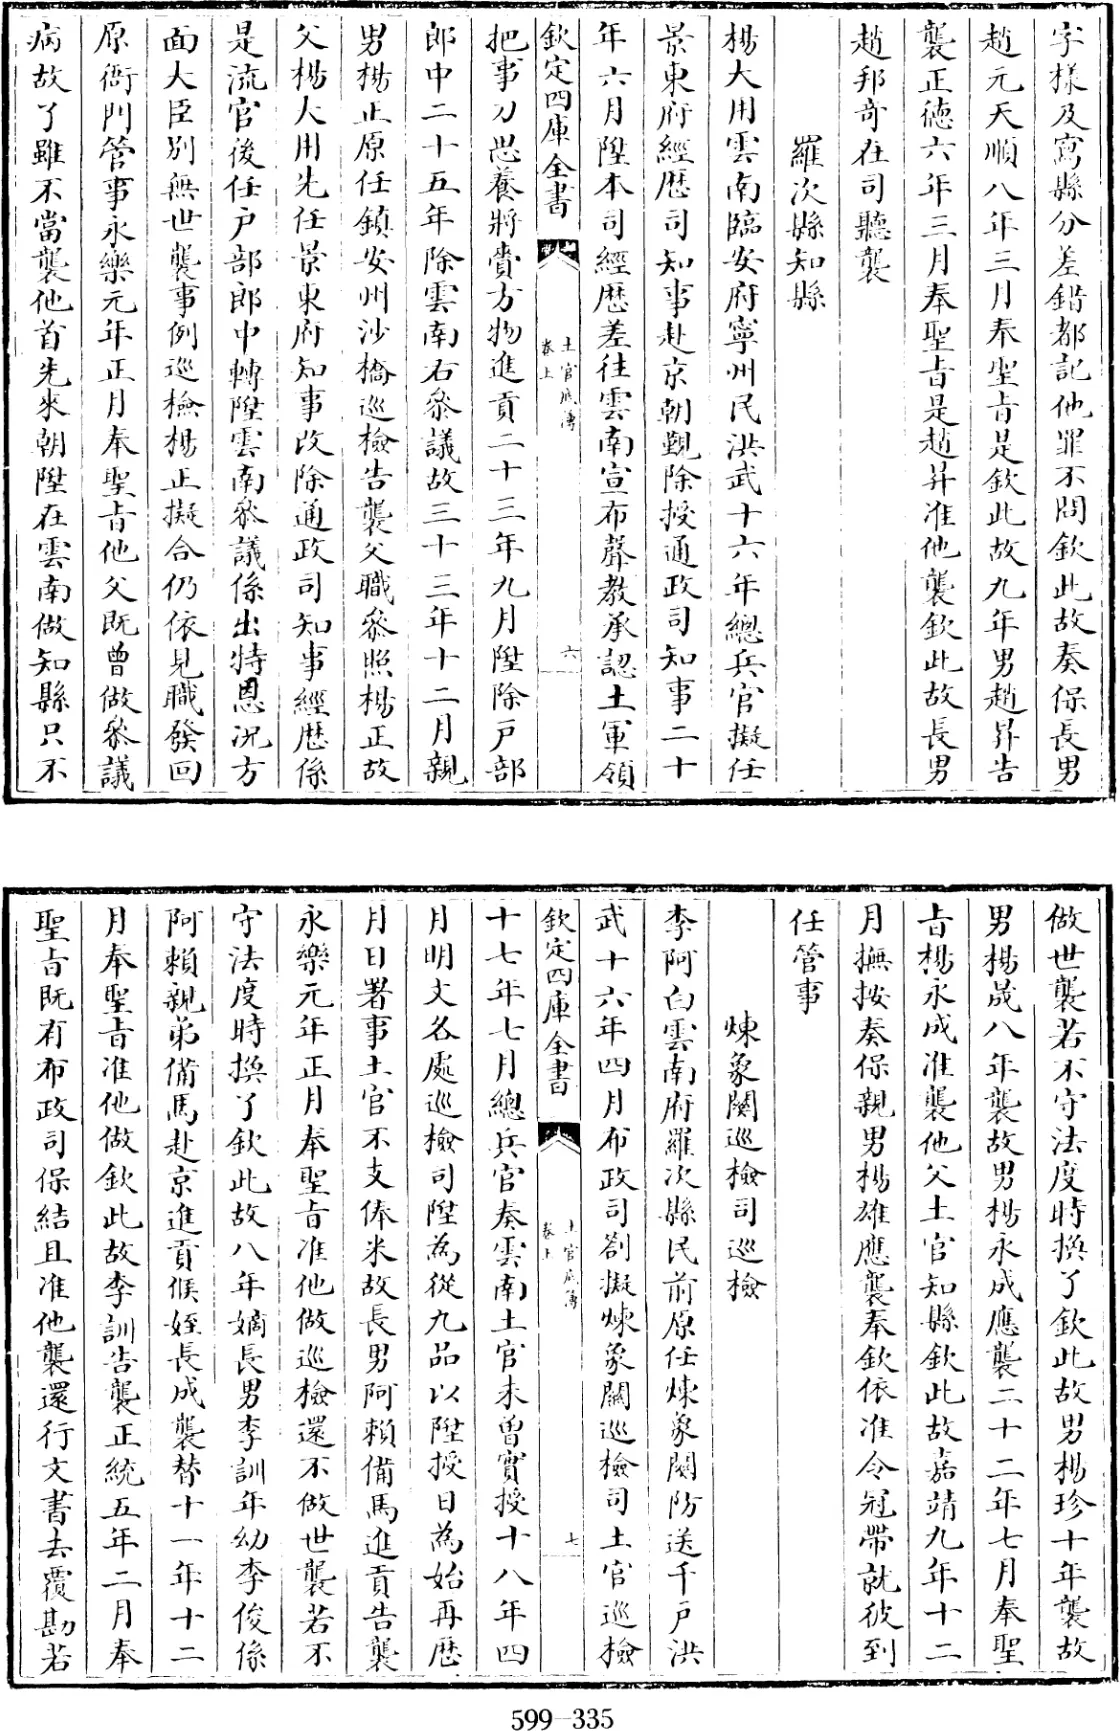 字樣及寫縣分差錯都記他罪不問欽此故奏保長男
趙元天順八年三月奉聖旨是欽此故九年男趙昇告
襲正德六年三月奉聖旨是趙昇准他襲欽此故長男
趙邦奇在司聽襲
羅次縣知縣
楊大用雲南臨安府寧州民洪武十六年總兵官擬任
景東府經歷司知事赴京朝覲除授通政司知事二十
年六月陞本司經歷差往雲南宣布聲教承認土軍領
欽定四庫全書
土官底簿
卷上
六
把事刀思養將賫方物進貢二十三年九月陞除戶部
郎中二十五年除雲南右叅議故三十三年十二月親
男楊正原任鎮安州沙橋巡檢告襲父職叅照楊正故
父楊大用先任景東府知事改除通政司知事經歷係
是流官後任戶部郎中轉陞雲南叅議係出特恩況方
面大臣別無世襲事例巡檢楊正擬合仍依見職發回
原衙門管事永樂元年正月奉聖旨他父既曾做叅議
病故了雖不當襲他首先來朝陞在雲南做知縣只不
做世襲若不守法度時換了欽此故男楊珍十年襲故
男楊晟八年襲故男楊永成應襲二十二年七月奉聖
旨楊永成准襲他父土官知縣欽此故嘉靖九年十二
月撫按奏保親男楊雄應襲奉欽依准令冠帶就彼到
任管事
煉象關巡檢司巡檢
李阿白雲南府羅次縣民前原任煉象關防送千戶洪
武十六年四月布政司劄擬煉象關巡檢司土官巡檢
欽定四庫全書
土官底簿
卷上
七
十七年七月總兵官奏雲南土官未曾實授十八年四
月明文各處巡檢司陞為從九品以陞授日為始再歷
月日署事土官不支俸米故長男阿賴備馬進貢告襲
永樂元年正月奉聖旨准他做巡檢還不做世襲若不
守法度時換了欽此故八年嫡長男李訓年幼李俊係
阿賴親弟備馬赴京進貢候姪長成襲替十一年十二
月奉聖旨准他做欽此故李訓告襲正統五年二月奉
聖旨既有布政司保結且准他襲還行文書去覆勘若
599-335